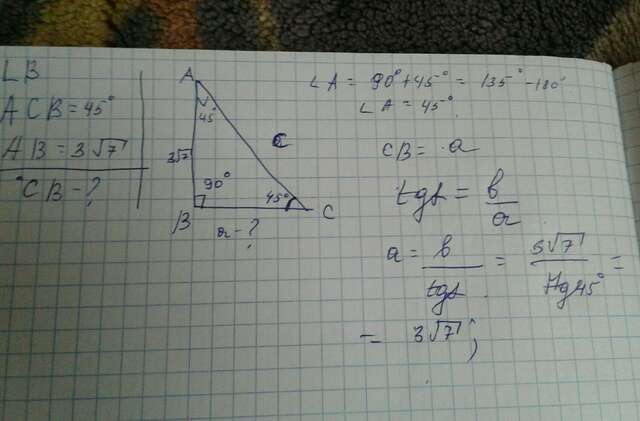 ∠B
ACB = 45°
AB = 3√7
CB - ?
A
45°
3√7
C
90°
45°
B
C
a - ?
∠A = 90° + 45° = 135° - 180°
∠A = 45°
CB = a
tg = b/a
a = b/tg = 3√7/tg45° =
= 3√7;